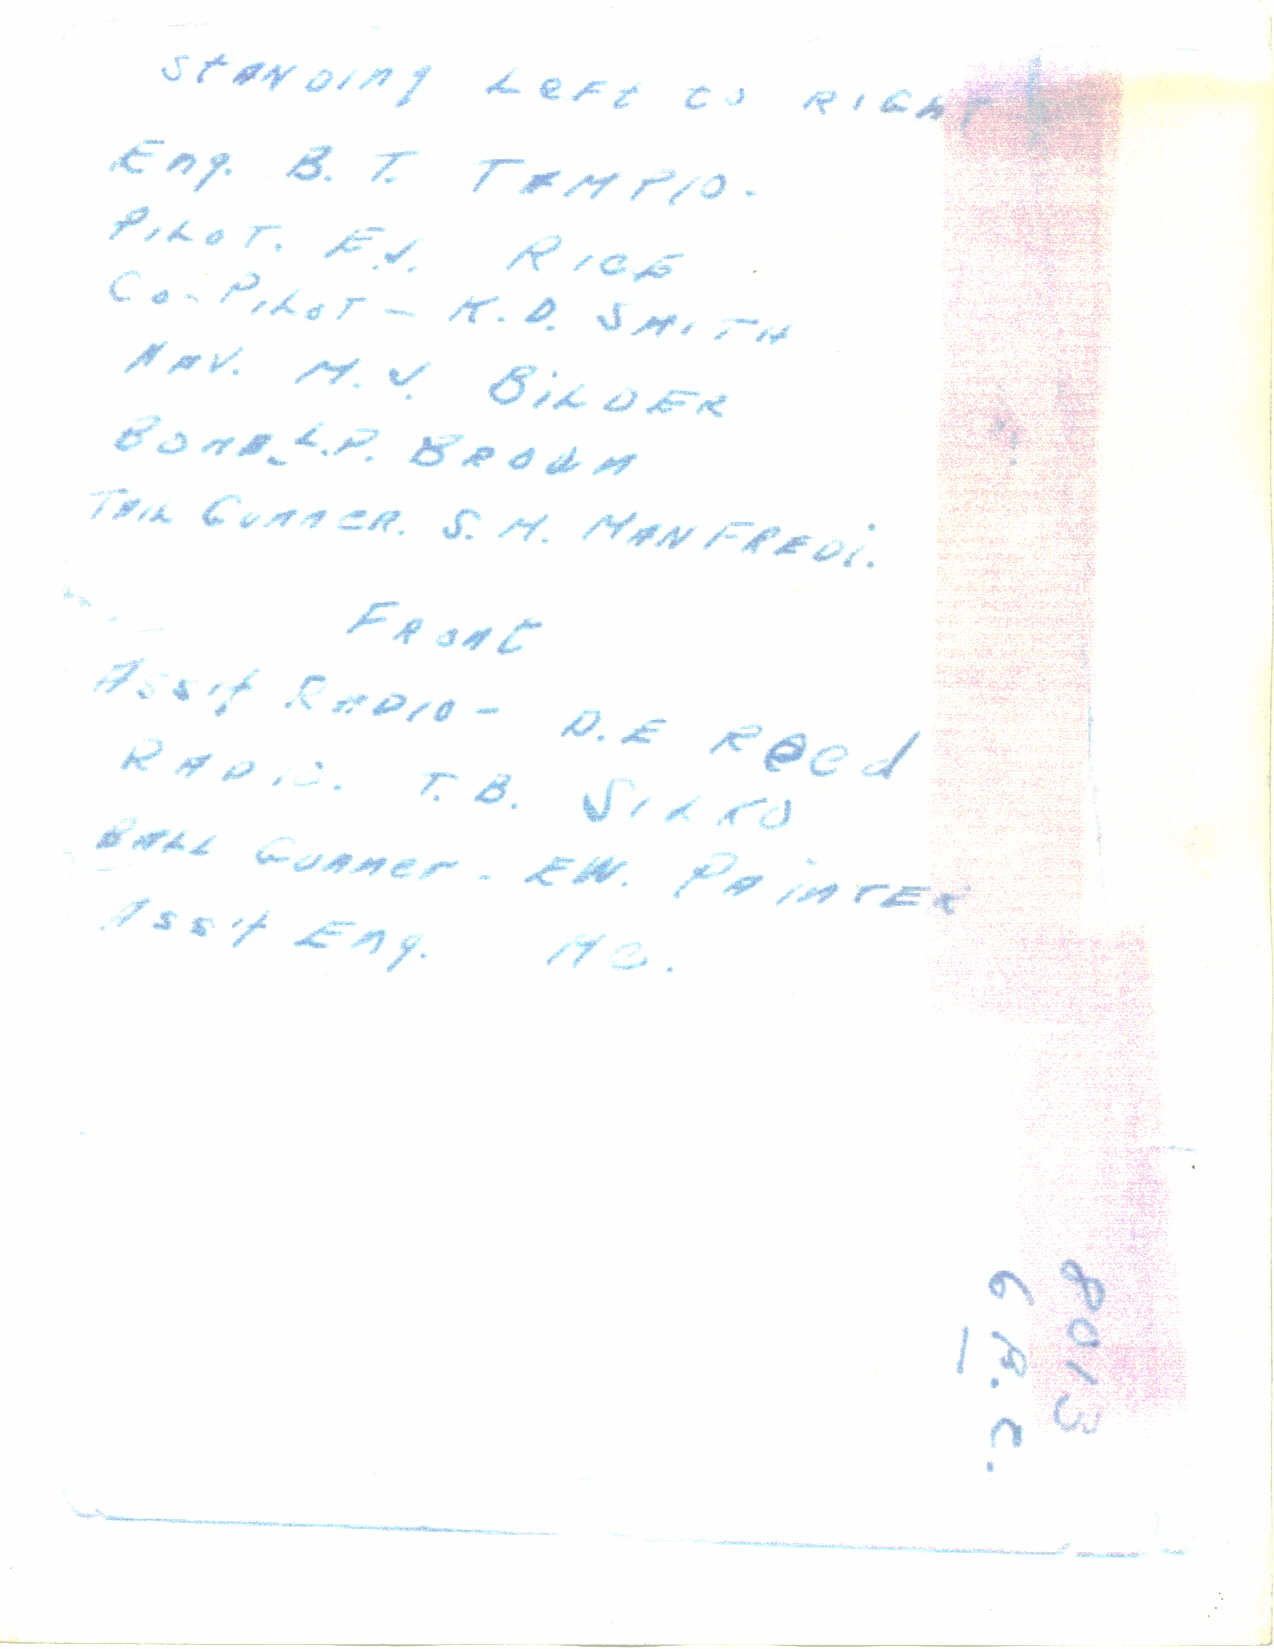 STANDing LeFt to RIGhT
Eng. B. T. TAMPIO.
PILOT. E.J. RICE
Co-PILOT - K.D. SMITH
NAV. M.J. BILDER
BOMB. L.P. BROWN
TAIL GUNNER. S.M. MANFREDi.
FRONt
ASS't RADIO - D.E REed
RADIO. T.B. SILKO
BALL GUNNer - E.W. PAINTER
ASS't Eng. ME.
8013
6 B.C.